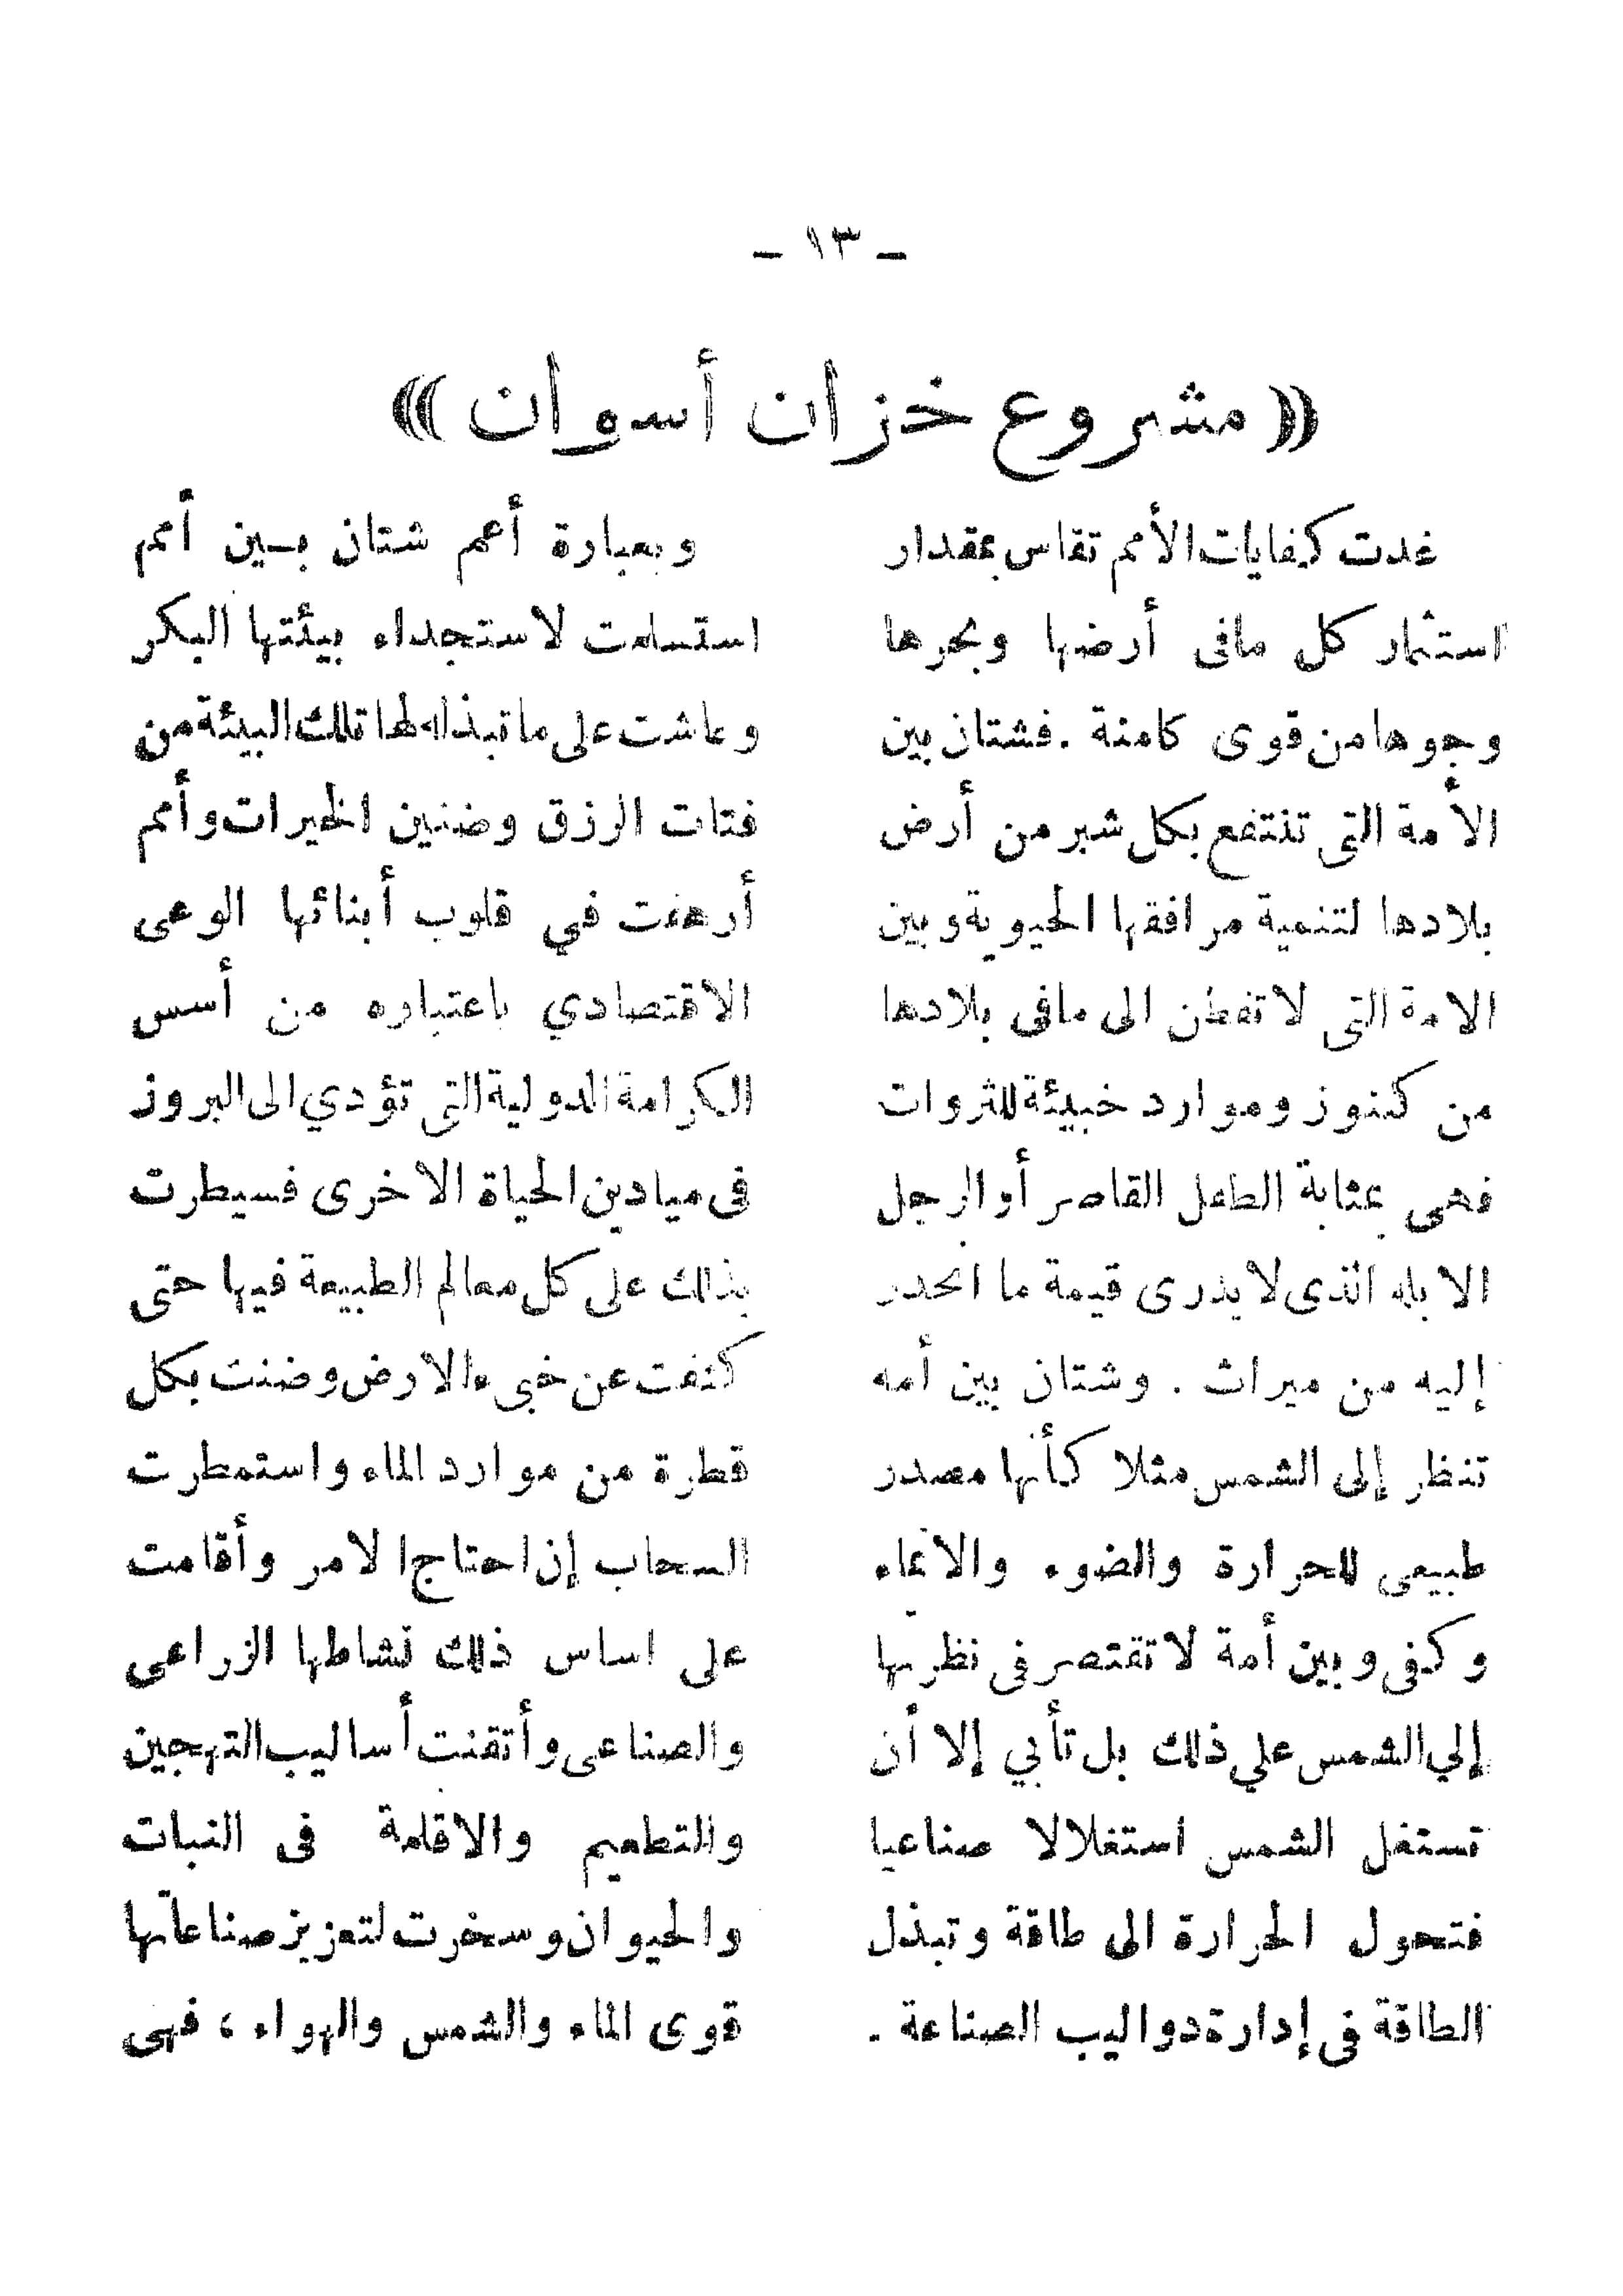 ـ ١٣ ـ
« مشروع خزان أسوان »
غدت كفايات الأمم تقاس بمقدار
استثمار كل مافى أرضها وبحرها
وجوها من قوى كامنة . فشتان بين
الأمة التى تنتفع بكل شبر من أرض
بلادها لتنمية مرافقها الحيوية وبين
الامة التى لا تفطن الى مافى بلادها
من كنوز وموارد خبيئة للثروات
فهى بمثابة الطفل القاصر أو الرجل
الابله الذى لا يدرى قيمة ما انحدر
إليه من ميراث . وشتان بين أمه
تنظر إلى الشمس مثلا كأنها مصدر
طبيعى للحرارة والضوء والانماء
وكفى وبين أمة لا تقتصر فى نظرتها
إلي الشمس علي ذلك بل تأبي إلا أن
تستغل الشمس استغلالا صناعيا
فتحول الحرارة الى طاقة وتبذل
الطاقة فى إدارة دواليب الصناعة .
وبعبارة أعم شتان بين أمم
استسلمت لاستجداء بيئتها البكر
وعاشت على ما تبذله لها تلك البيئة من
فتات الرزق وضنين الخيرات وأمم
أرهفت في قلوب أبنائها الوعى
الاقتصادي باعتباره من أسس
الكرامة الدولية التى تؤدي الى البروز
فى ميادين الحياة الاخرى فسيطرت
بذلك على كل معالم الطبيعة فيها حتى
كشفت عن خبىء الارض وضنت بكل
قطرة من موارد الماء واستمطرت
السحاب إن احتاج الامر وأقامت
على اساس ذلك نشاطها الزراعى
والصناعى وأتقنت أساليب التهجين
والتطعيم والاقلمة فى النبات
والحيوان وسخرت لتعزيز صناعاتها
قوى الماء والشمس والهواء ، فهى